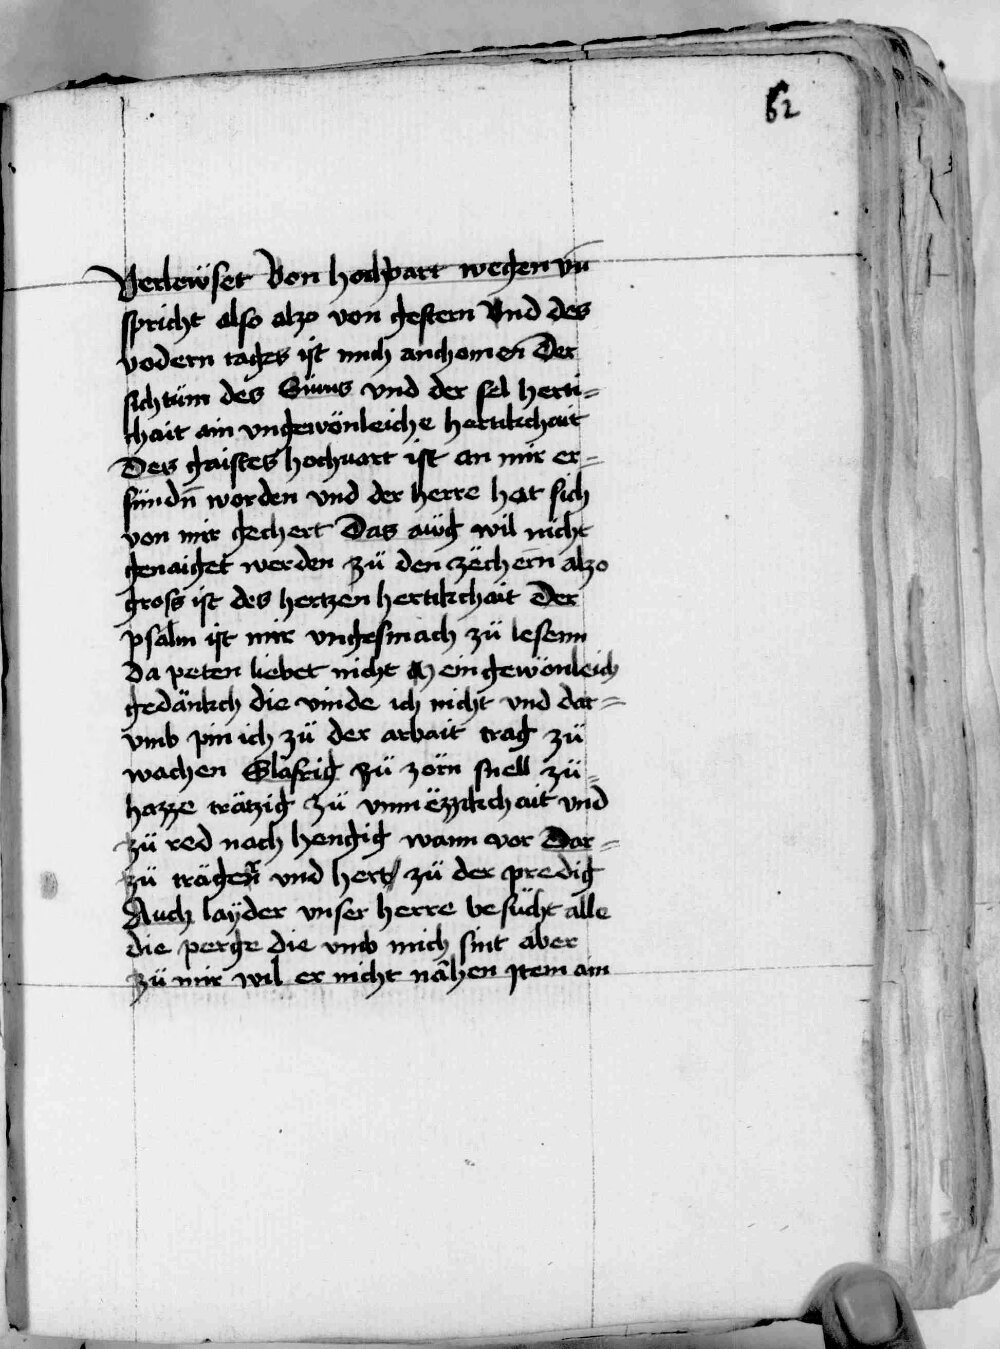 62
Verlewset Von hochpart wegen vn̄
spricht also alzo von gestern Vnd des
vodern tages ist mich anchomen Der
sichtüm des Sinns vnd der sel herti=
chait ain vngewönleiche hertikchait
Des gaistes hochuart ist an mir er=
fündn̄ worden vnd der herre hat sich
von mir gechert Das aüg wil nicht
genaiget werden zü den zëchern̄ alzo
gross ist des hertzen hertikchait Der
psalm ist mir vngesmach zü lesenn
Da peten liebet nicht Mein gewönleich
gedänkch die vinde ich nicht vnd dar=
vmb pin ich zü der arbait trag zü
wachen Slafrig zü zorn snell zü=
hazze trätzig zü vnmëzzikchait vnd
zü red nach hengig wann vor Dar=
zü träger vnd hert zü der predig
Auch layder vnser herre besücht alle
die perge die vmb mich sint aber
zü mir wil er nicht nahen Item ain